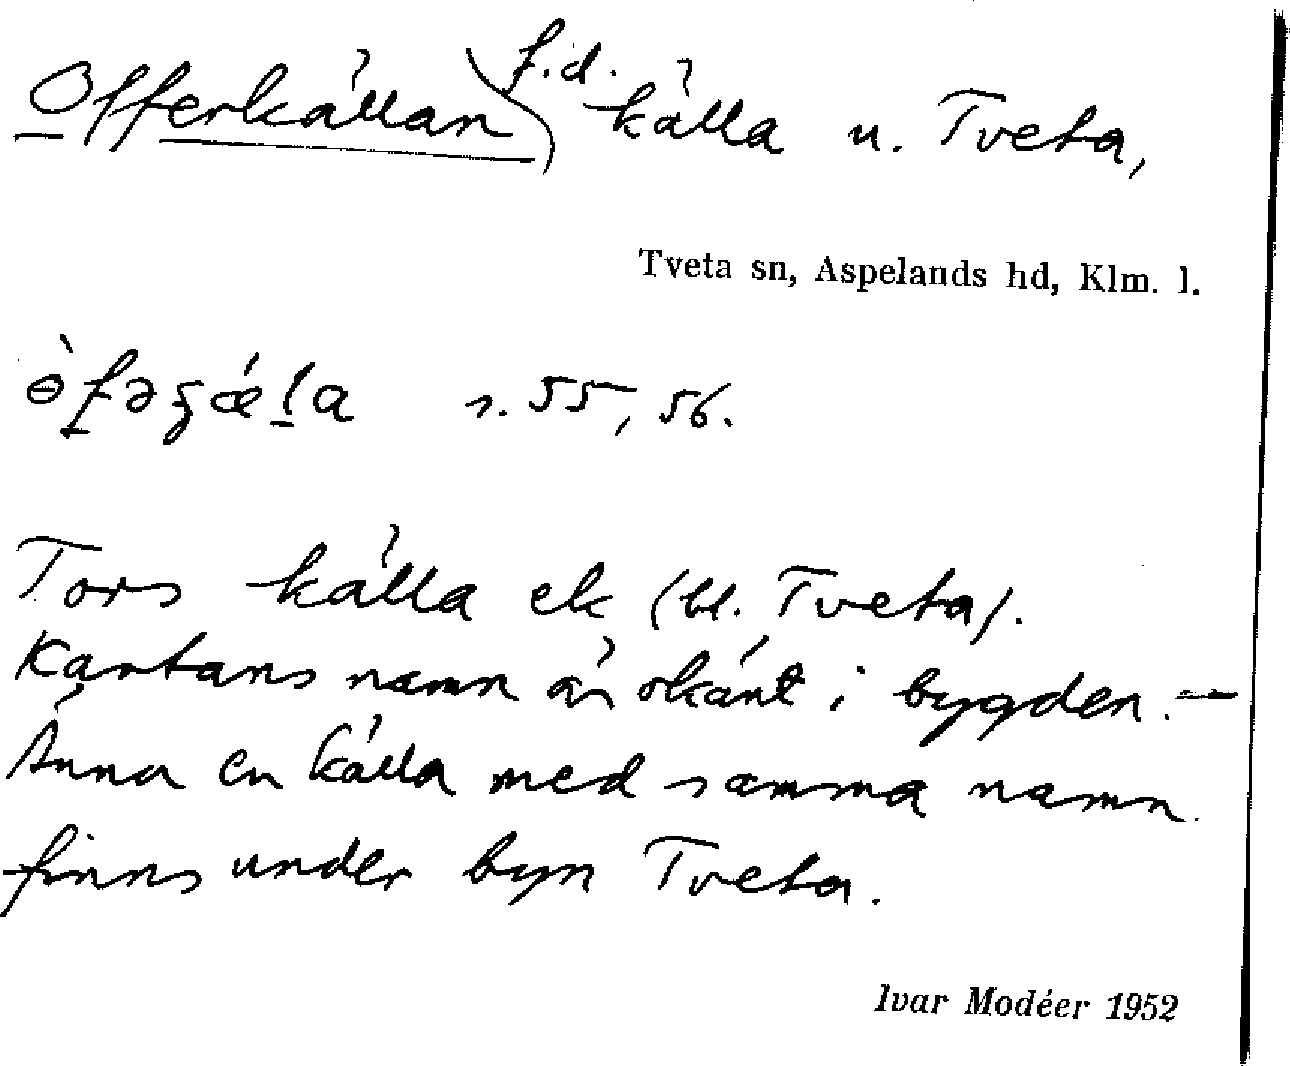 Offerkällan f.d. källa u. Tveta,
Tveta sn, Aspelands hd, Klm. l.
s. 55, 56.
Tors källa ek (bl. Tveta).
Kartans namn är okänt i bygden. —
Ännu en källa med samma namn
finns under byn Tveta.
Ivar Modéer 1952